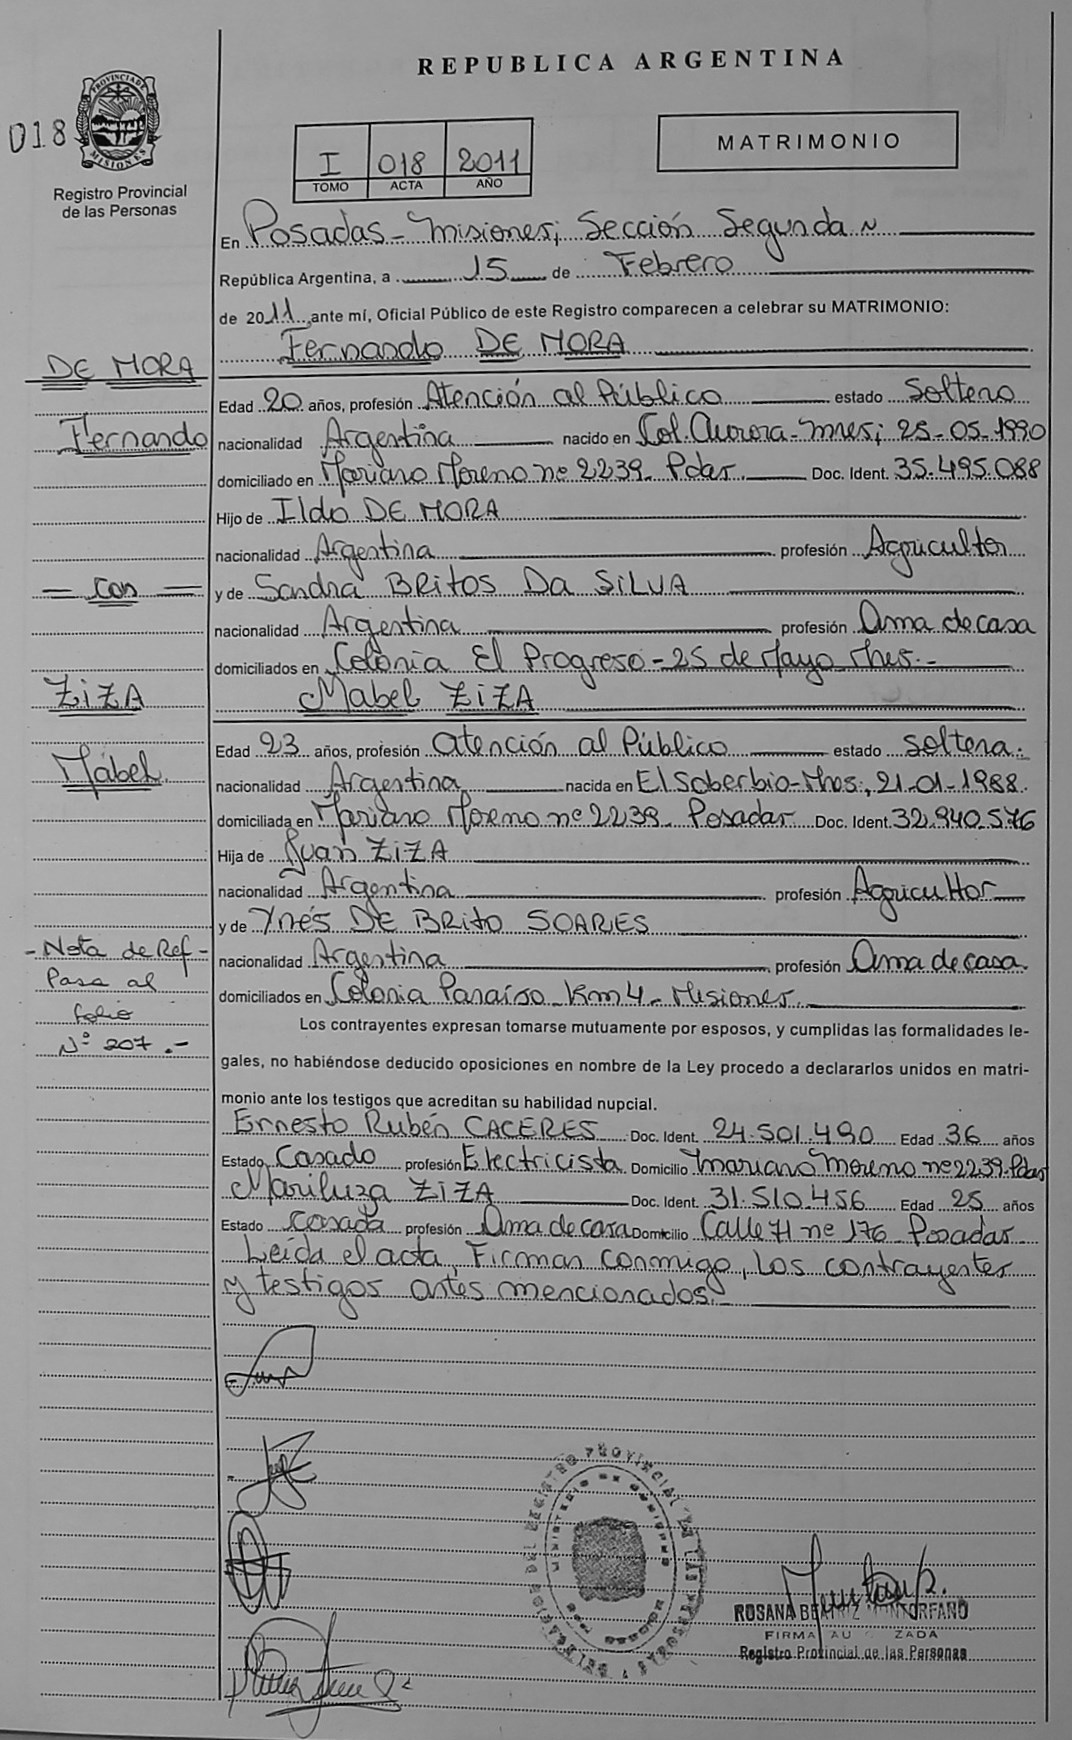 REPUBLICA ARGENTINA
018
PROVINCIA DE
MISIONES
Registro Provincial
de las Personas
I 018 2011
TOMO ACTA AÑO
MATRIMONIO
En Posadas - Misiones; Sección Segunda
República Argentina, a 15 de Febrero
de 2011 ante mí, Oficial Público de este Registro comparecen a celebrar su MATRIMONIO:
Fernando DE MORA
DE MORA
Edad 20 años, profesión Atención al Público estado Soltero
Fernando
nacionalidad Argentina nacido en Col. Aurora - Mnes; 25-05-1990
domiciliado en Mariano Moreno nº 2239 - Pdas. Doc. Ident. 35.495.088
Hijo de Ildo DE MORA
nacionalidad Argentina profesión Agricultor
= Con =
y de Sandra BRITOS DA SILVA
nacionalidad Argentina profesión Ama de casa
domiciliados en Colonia El Progreso - 25 de Mayo Mnes.-
ZIZA
Mabel ZIZA
Edad 23 años, profesión Atención al Público estado Soltera.
Mabel
nacionalidad Argentina nacida en El Soberbio - Mnes; 21-01-1988.
domiciliada en Mariano Moreno nº 2239 - Posadas Doc. Ident. 32.940.576
Hija de Juan ZIZA
nacionalidad Argentina profesión Agricultor
y de Ynés DE BRITO SOARES
- Nota de Ref -
nacionalidad Argentina profesión Ama de casa.
Pasa al
domiciliados en Colonia Paraíso - Km 4 - Misiones
folio
Nº 207.-
Los contrayentes expresan tomarse mutuamente por esposos, y cumplidas las formalidades le-
gales, no habiéndose deducido oposiciones en nombre de la Ley procedo a declararlos unidos en matri-
monio ante los testigos que acreditan su habilidad nupcial.
Ernesto Rubén CACERES Doc. Ident. 24.501.490 Edad 36 años
Estado Casado profesión Electricista Domicilio Mariano Moreno nº 2239. Pdas
Mariluza ZIZA Doc. Ident. 31.510.456 Edad 25 años
Estado Casada profesión Ama de casa Domicilio Calle 71 nº 176 - Posadas
Leída el acta, Firman conmigo, los contrayentes
y testigos antes mencionados.
REGISTRO PROVINCIAL DE LAS PERSONAS
MINISTERIO DE GOBIERNO
ROSANA BEATRIZ MONTORFANO
FIRMA AUTORIZADA
Registro Provincial de las Personas